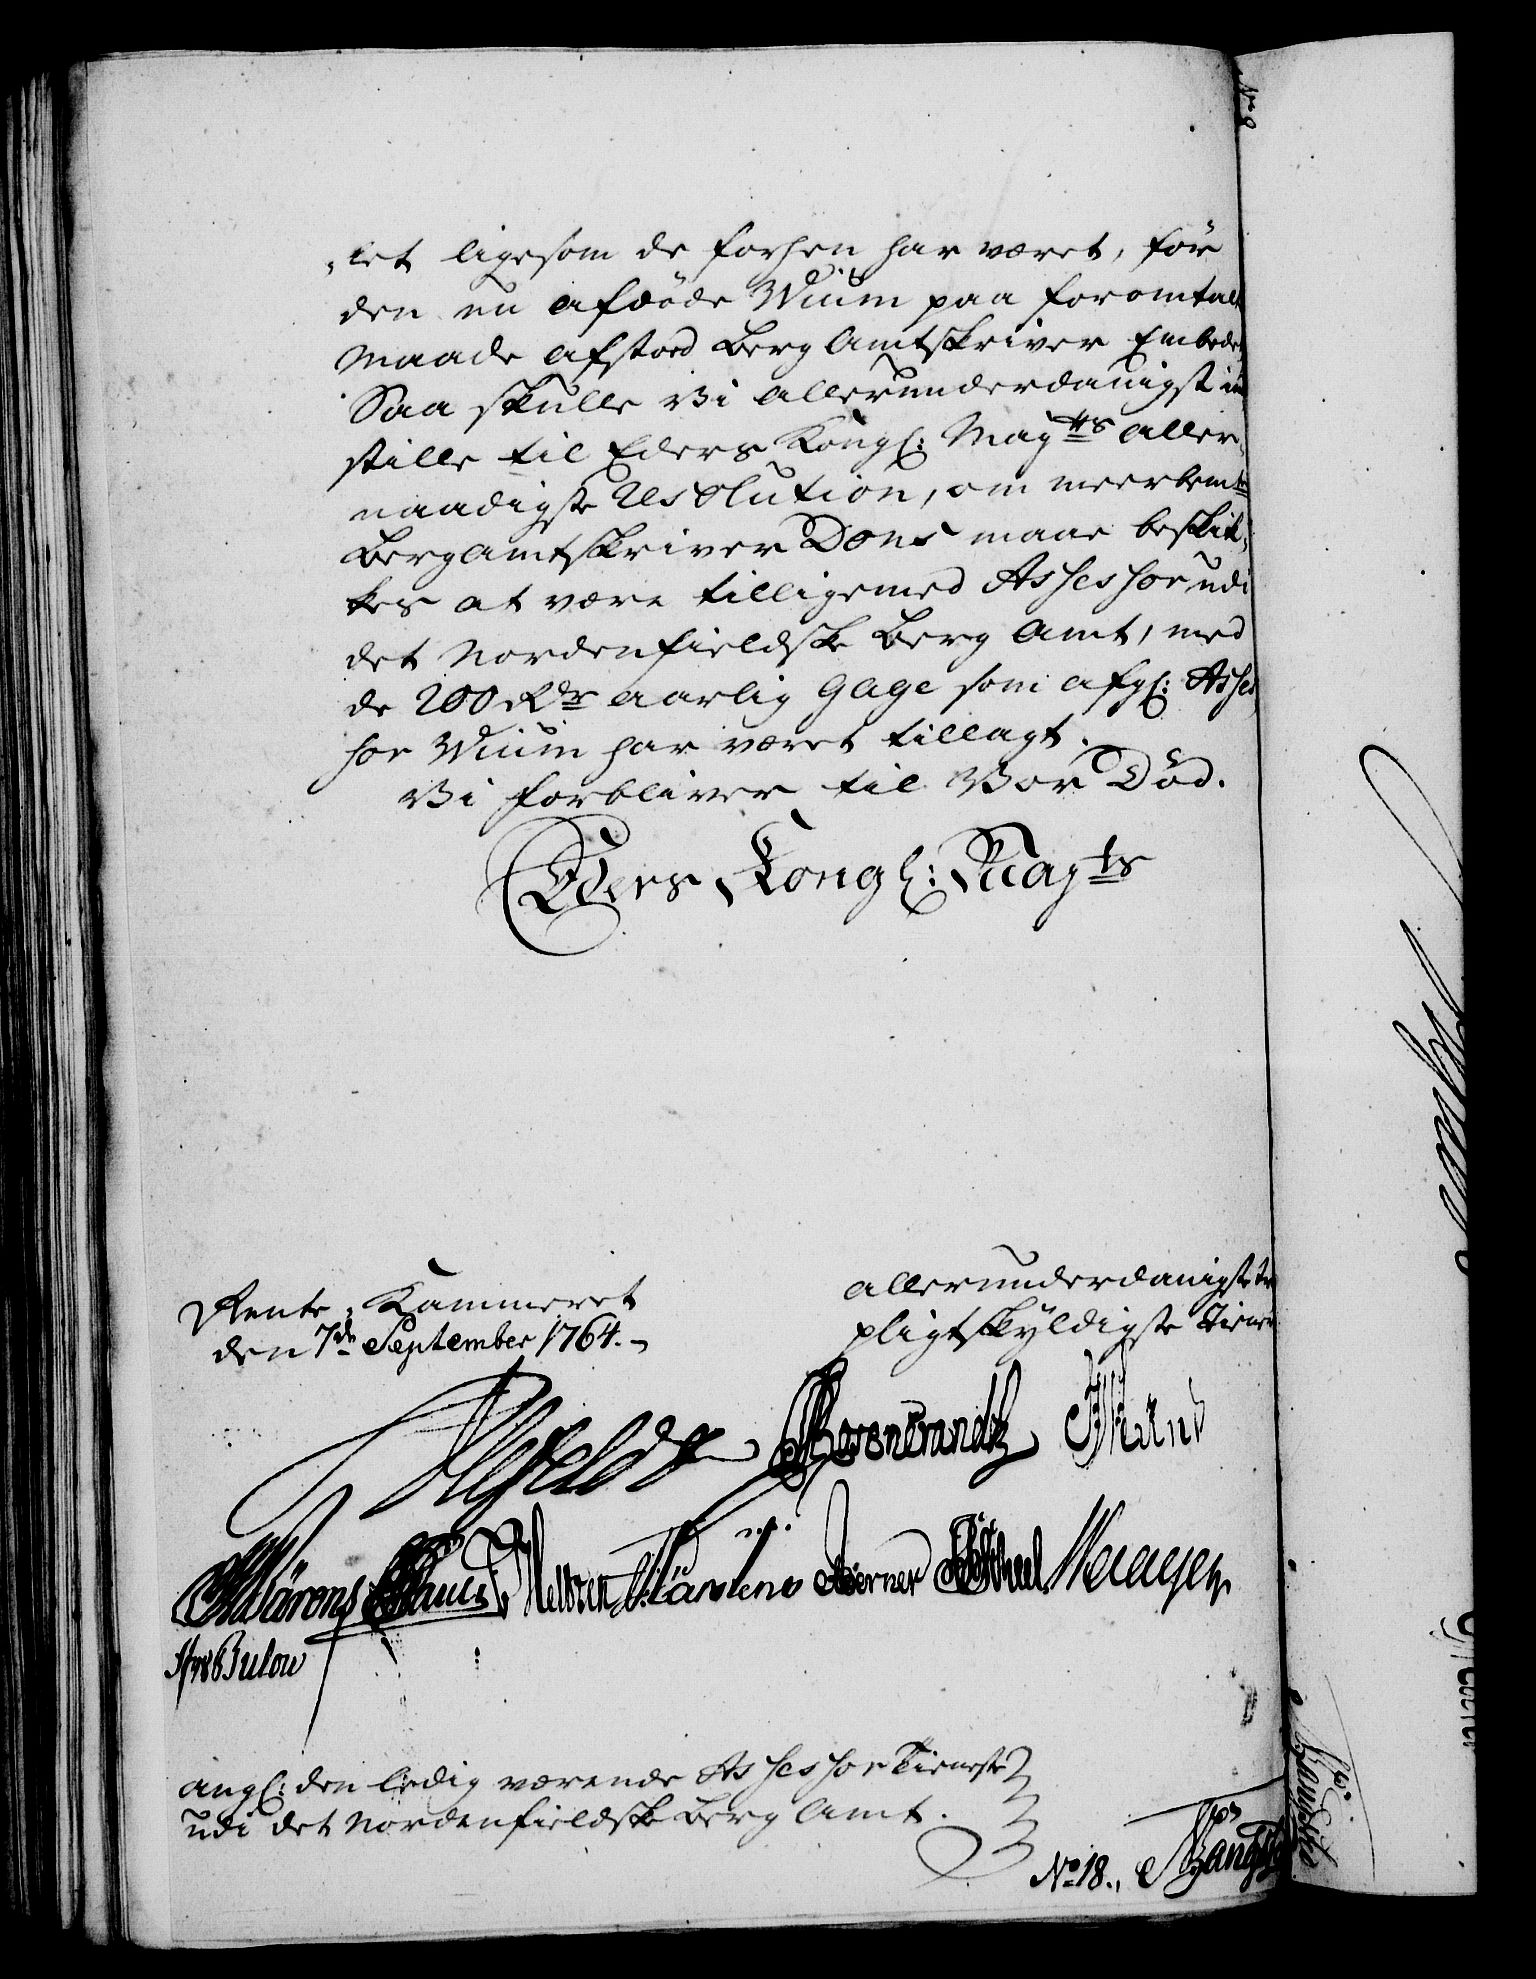 No 8
„let ligesom de forhen har været, før
den nu afdøde Wiium paa foromtalt
Maade afstoed Berg Amtskriver Embedet
Saa skulle Vi allerunderdanigst ind
stille til Eders Kongl: Mayts aller„
naadigste Resolution, om meerbemte
Bergamtskriver Dons maae beskik„
kes at være tilligemed Assessor udi
det Nordenfieldske Berg Amt, med
de 200 Rdr aarlig Gage som afgl: Asses
sor Wiium har været tillagt.
Vi forbliver til Vor Død.
Eders Kongl: Mayts
allerunderdanigste
pligtskyldigste Tienere
Rente-Kammeret
den 7de September 1764.
Ahlefeldt
Bülow
angl: den ledig værende Assessor Tieneste
udi det Nordenfieldske Berg Amt.
No 18.,